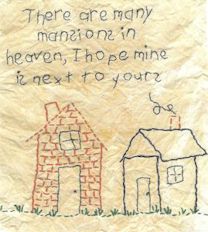 There are many
mansions in
heaven, I hope mine
is next to yours